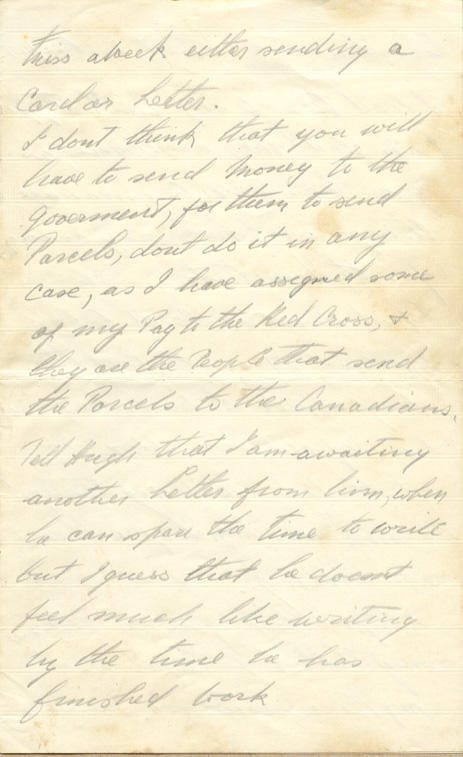 miss a week either sending a
Card or Letter.
I dont think that you will
have to send money to the
goverment, for them to send
Parcels, dont do it in any
case, as I have assigned some
of my Pay to the Red Cross, &
they are the People that send
the Parcels to the Canadians.
Tell Hugh that I am awaiting
another Letter from him, when
he can spare the time to write
but I guess that he doesnt
feel much like writing
by the time he has
finished work